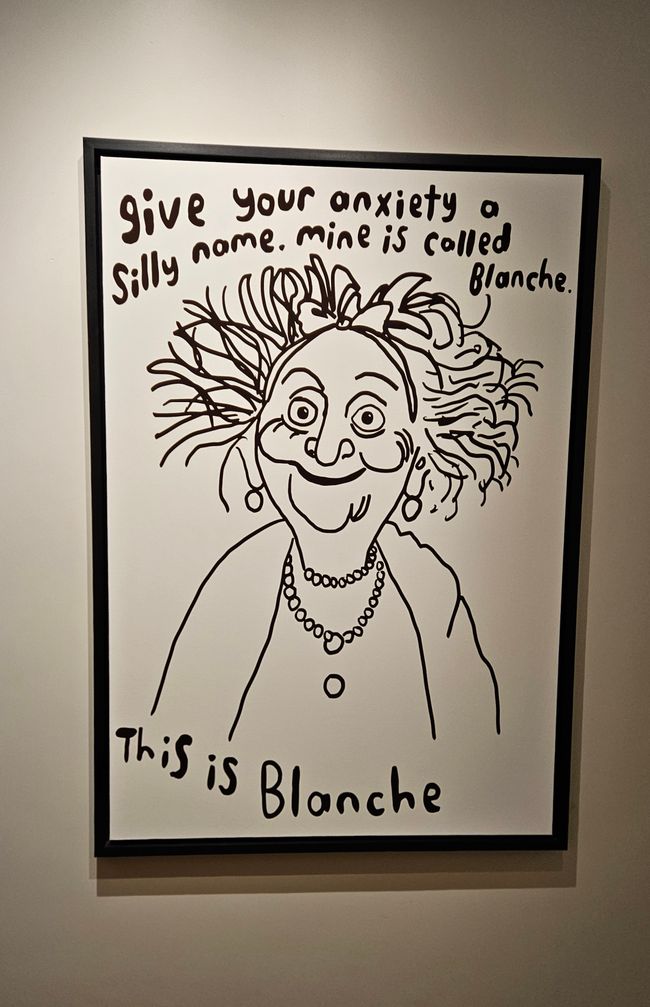 give your anxiety a
silly name. mine is called
Blanche.
This is Blanche